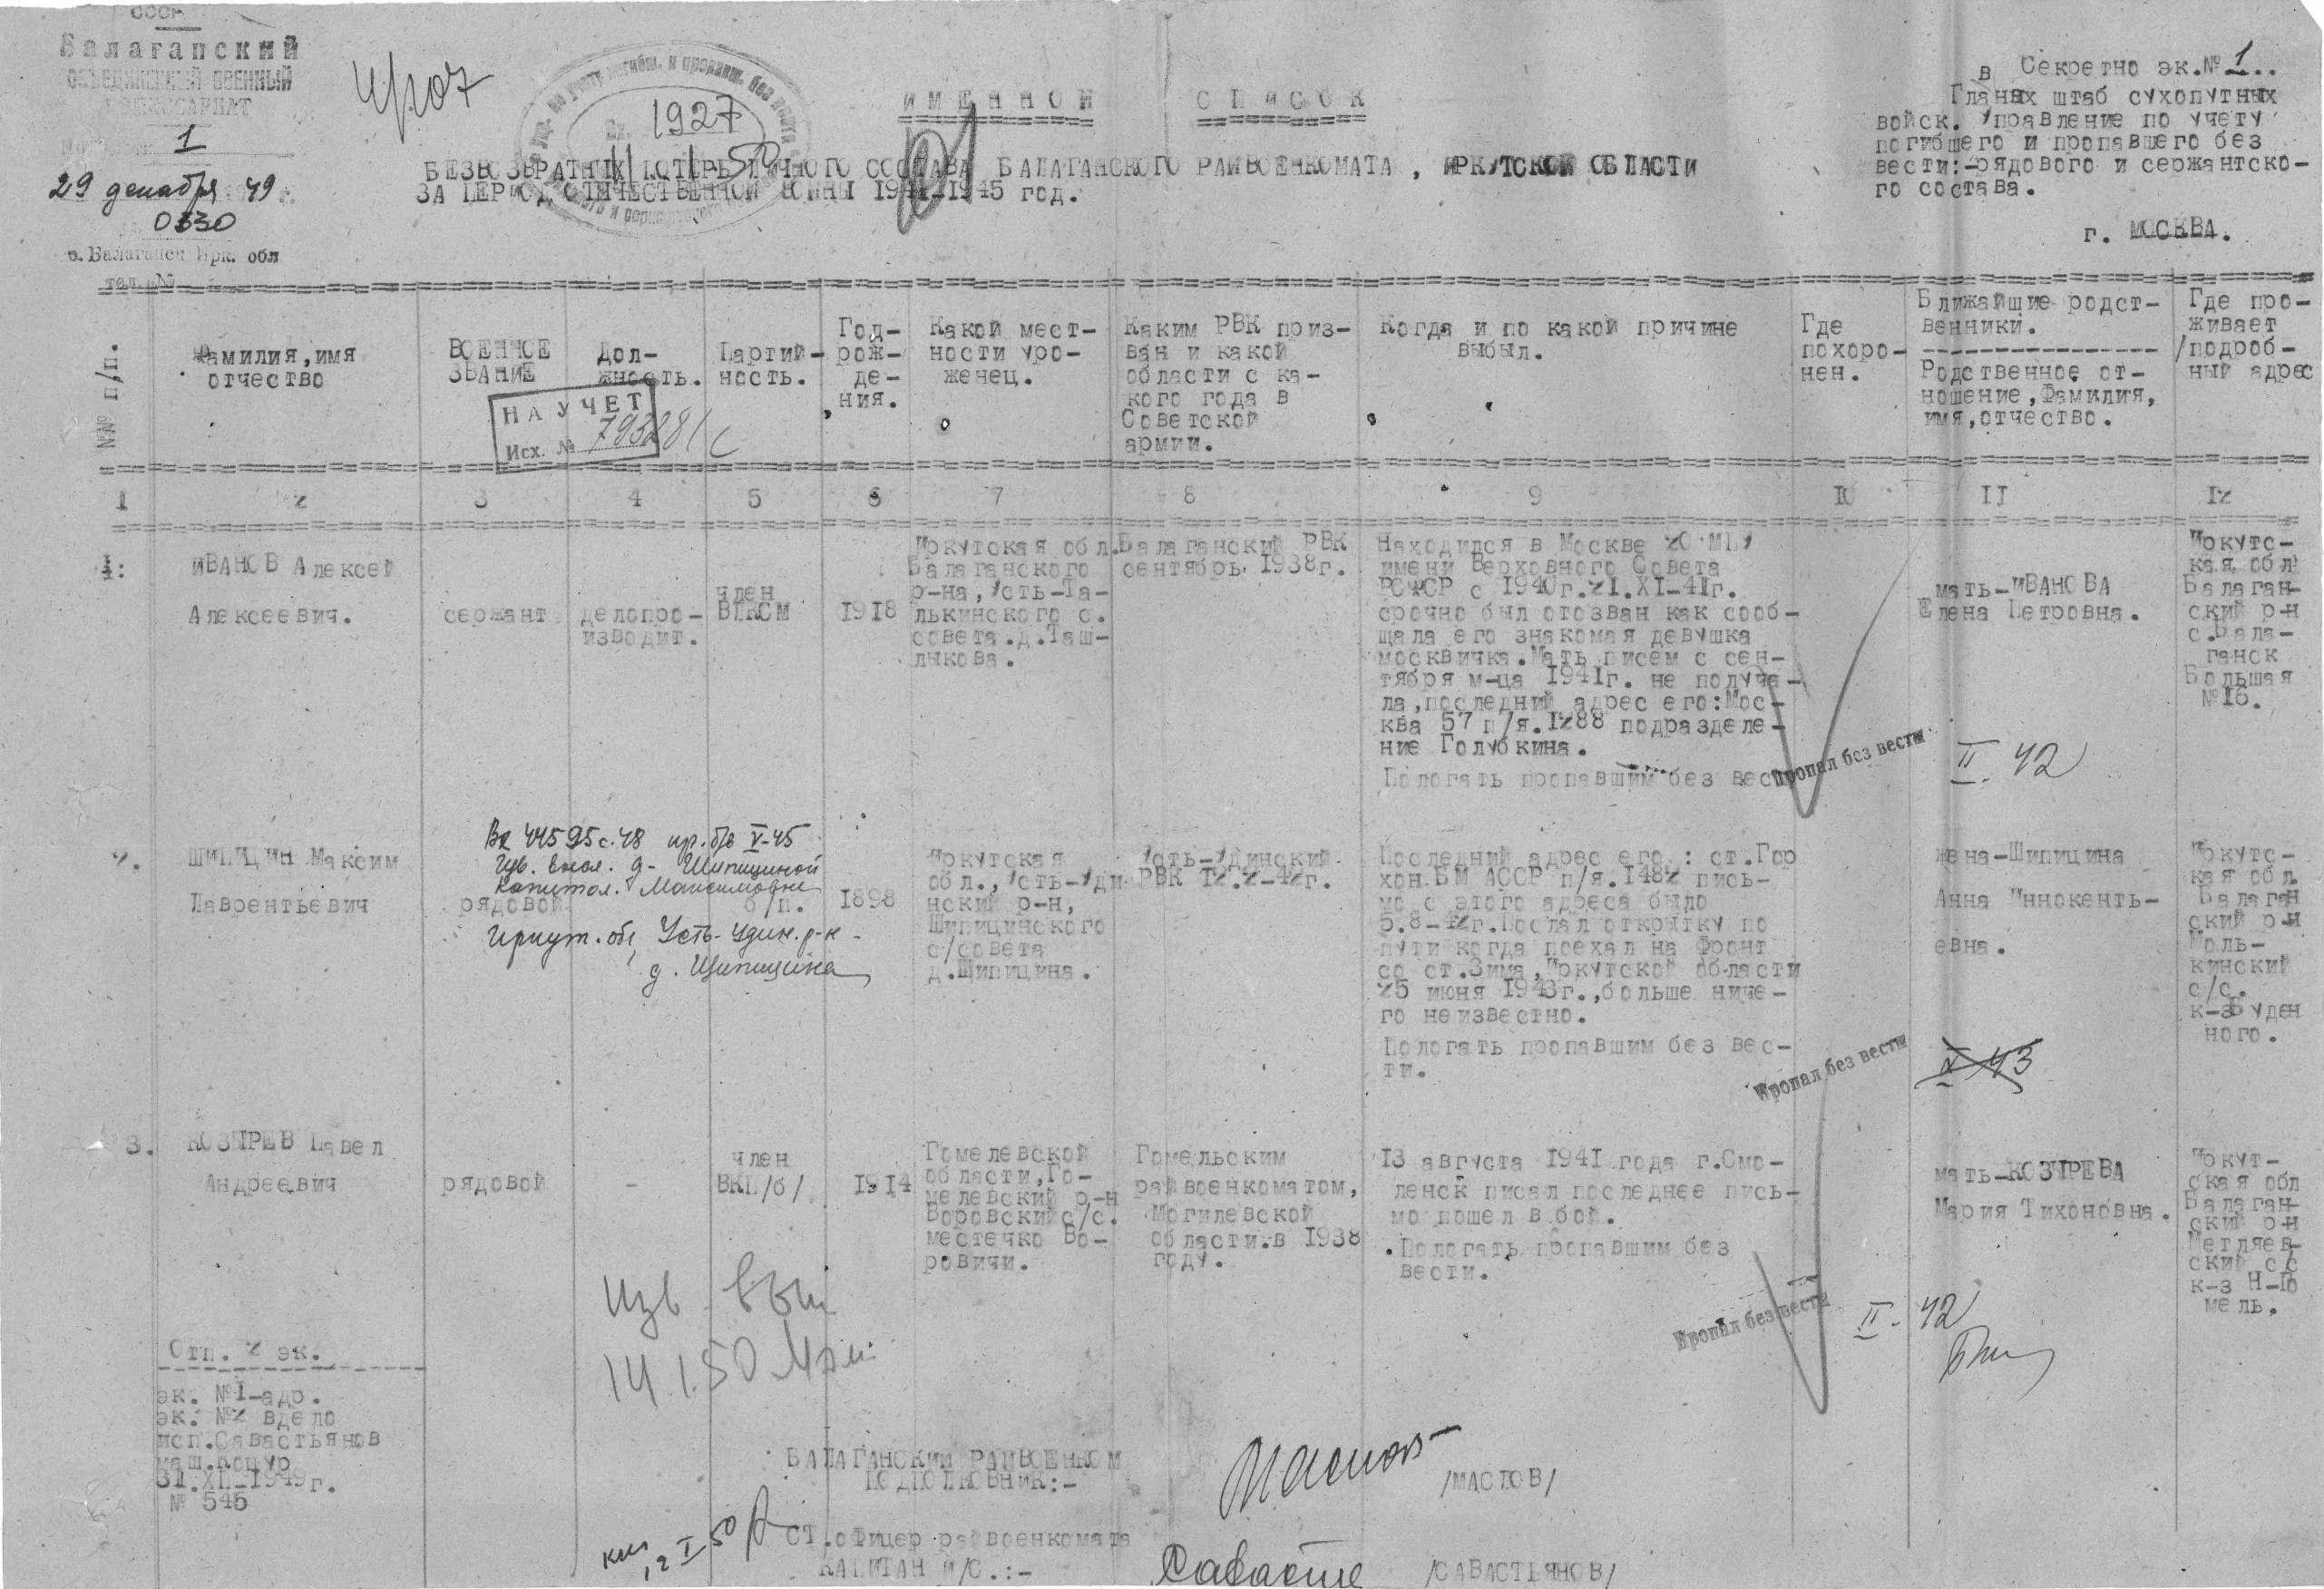 СССР
Балаганский
ОБЪЕДИНЕННЫЙ ВОЕННЫЙ
КОМИССАРИАТ
1
29 декабря 49 г.
0330
с. Балаганск Ирк. обл
тел. №
1927
ИМЕННОЙ СПИСОК
БЕЗВОЗВРАТНЫХ ПОТЕРЬ ЛИЧНОГО СОСТАВА БАЛАГАНСКОГО РАЙВОЕНКОМАТА, ИРКУТСКОЙ ОБЛАСТИ
ЗА ПЕРИОД ОТЕЧЕСТВЕННОЙ ВОЙНЫ 1941-1945 год.
Секретно эк.№ 1..
в
Гланых штаб сухопутных
войск. Управление по учету
погибшего и пропавшего без
вести:-рядового и сержантско-
го состава.
г. МОСКВА.
№№ п/п.
Фамилия,имя
отчество
ВОЕННОЕ
ЗВАНИЕ
Дол-
жность.
Партий-
ность.
Год-
рож-
де-
ния.
Какой мест-
ности уро-
женец.
Каким РВК приз-
ван и какой
области с ка-
кого года в
Советской
армии.
Когда и по какой причине
выбыл.
Где
похоро-
нен.
Ближайшие родст-
венники.
Родственное от-
ношение,Фамилия,
имя,отчество.
Где про-
живает
/подроб-
ный адрес
НА УЧЕТ
Исх. № 793281с
1 2 3 4 5 6 7 8 9 10 11 12
1.
ИВАНОВ Алексей
Алексеевич.
сержант
делопро-
изводит.
член
ВЛКСМ
1918
Иркутская обл.
Балаганского
р-на,Усть-Та-
лькинского с.
совета.д.Таш-
лыкова.
Балаганский РВК
сентябрь 1938г.
Находился в Москве 20 МПУ
имени Верховного Совета
РСФСР с 1940г.21.XI-41г.
срочно был отозван как сооб-
щала его знакомая девушка
москвичка.Мать писем с сен-
тября м-ца 1941г. не получа-
ла,последний адрес его:Мос-
ква 57 п/я.1288 подразделе-
ние Голубкина.
Пологать пропавшим без вес
Пропал без вести
мать-ИВАНОВА
Елена Петровна.
II. 42
Иркутс-
кая обл
Балаган-
ский р-н
с.Бала-
ганск
Большая
№16.
2.
ШИПИЦИН Максим
Лаврентьевич
Вх 44595с.48 пр. б/в V-45
Изв. высл. д- Шипициной
Капитол. Максимовне
Иркут. обл, Усть-Удин. р-н
д. Шипицина
рядовой
б/п.
1898
Иркутская
обл.,Усть-Уди
нский р-н,
Шипицинского
с/совета
д.Шипицина.
Усть-Удинский
РВК 12.2-42г.
Последний адрес его : ст.Гор
хон.БМ АССР п/я.1482 пись-
мо с этого адреса было
5.8-42г.Послал открытку по
пути когда поехал на Фронт
со ст.Зима,Иркутской области
25 июня 1943г.,больше ниче-
го неизвестно.
Пологать пропавшим без вес-
ти.
Пропал без вести
жена-Шипицина
Анна Иннокенть-
евна.
Иркутс-
кая обл.
Балаган
ский р-н
Шоль-
кинский
с/с.
к-зБуден
ного.
3.
КОЗЫРЕВ Павел
Андреевич
рядовой
-
член
ВКП/б/
1914
Гомелевской
области,Го-
мелевский р-н
Воровский с/с.
местечко Во-
ровичи.
Гомельским
райвоенкоматом,
Могилевской
области.в 1938
году.
13 августа 1941 года г.Смо-
ленск писал последнее пись-
мо пошел в бой.
Пологать пропавшим без
вести.
Пропал без вести
мать-КОЗЫРЕВА
Мария Тихоновна.
II. 42
Иркут-
ская обл
Балаган-
ский р-н
Метляев-
ский с/с
к-з Н-Го
мель.
Изв выс
14 1.50
Отп. 2 эк.
эк. №1-адр.
эк. №2 вдело
исп.Савастьянов
маш.Коцур
31.XII-1949г.
№ 545
БАЛАГАНСКИЙ РАЙВОЕНКОМ
ПОДПОЛКОВНИК:-
Маслов
/МАСЛОВ/
СТ.офицер райвоенкомата
КАПИТАН И/С.:-
Савастье
/САВАСТЬЯНОВ/